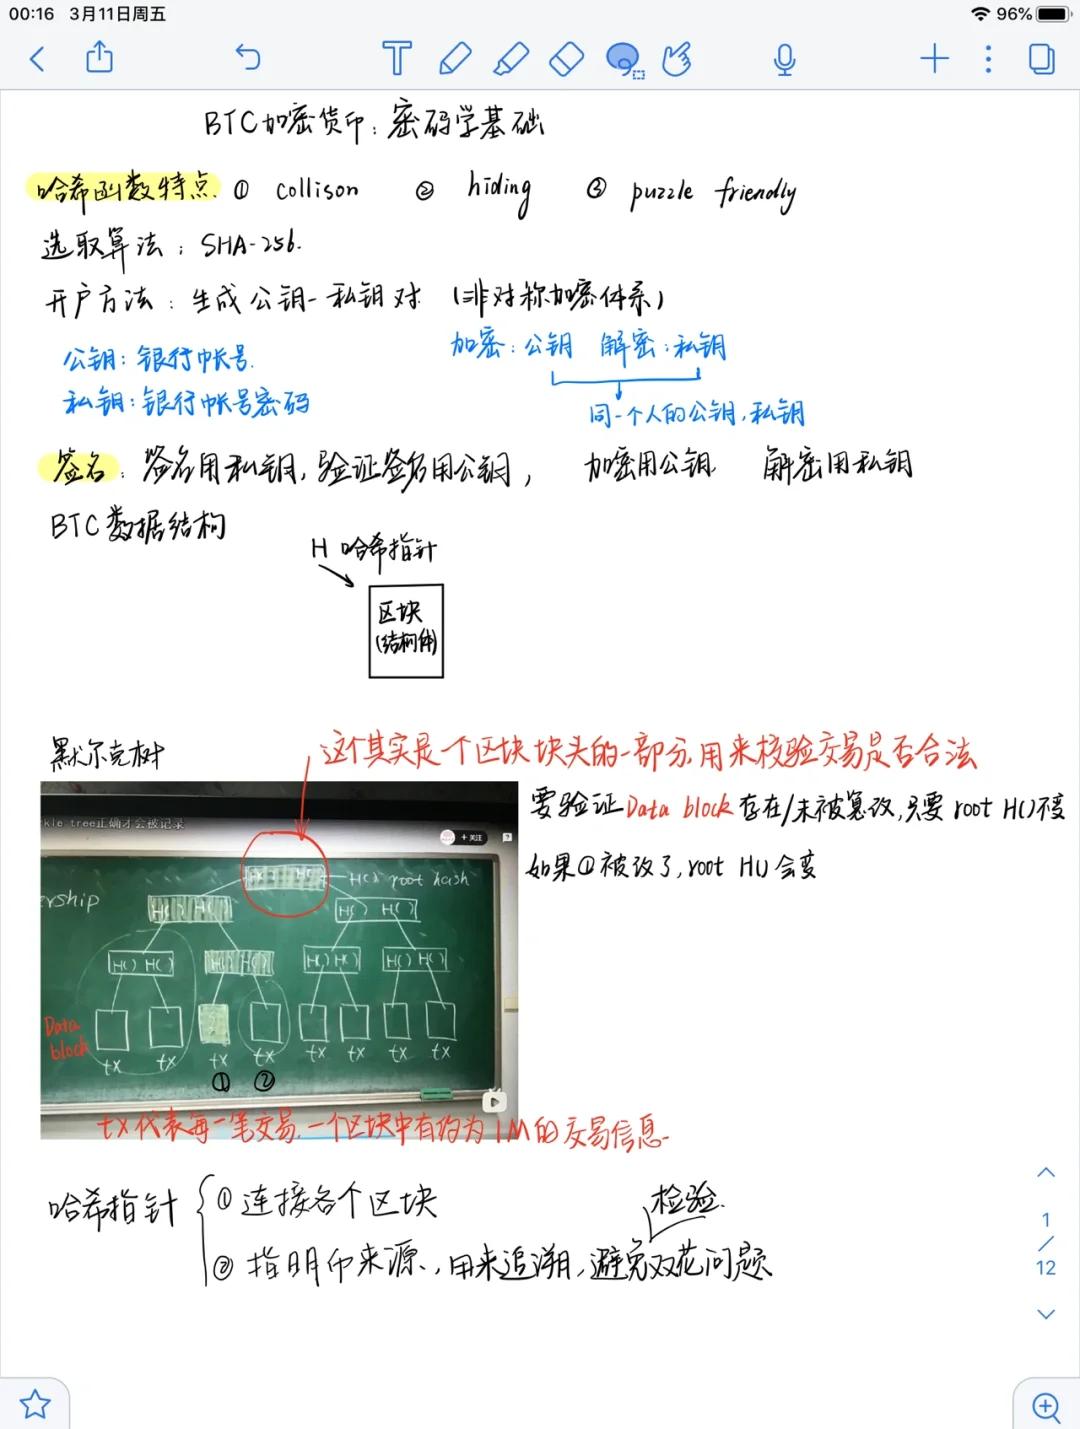 00:16 3月11日周五 96%
BTC加密货币：密码学基础
哈希函数特点. ① collison ② hiding ③ puzzle friendly
选取算法：SHA-256.
开户方法：生成公钥-私钥对 (非对称加密体系)
加密：公钥 解密：私钥
公钥：银行帐号.
私钥：银行帐号密码
同一个人的公钥,私钥
签名：签名用私钥,验证签名用公钥, 加密用公钥 解密用私钥
BTC数据结构
H 哈希指针
区块
(结构体)
默尔克树
这个其实是一个区块块头的一部分,用来校验交易是否合法
要验证Data block存在/未被篡改,只要root H()不变
如果①被改了,root H()会变
kle tree正确才会被记录
+ 关注
H() H() H() root hash
ership
H() H() H() H()
H() H() H() H() H() H() H() H()
Data
block
tx tx tx tx tx tx tx tx
① ②
tx代表每一笔交易.一个区块中有约为1M的交易信息.
哈希指针 ① 连接各个区块
检验.
② 指明币来源,用来追溯,避免双花问题
1
/
12